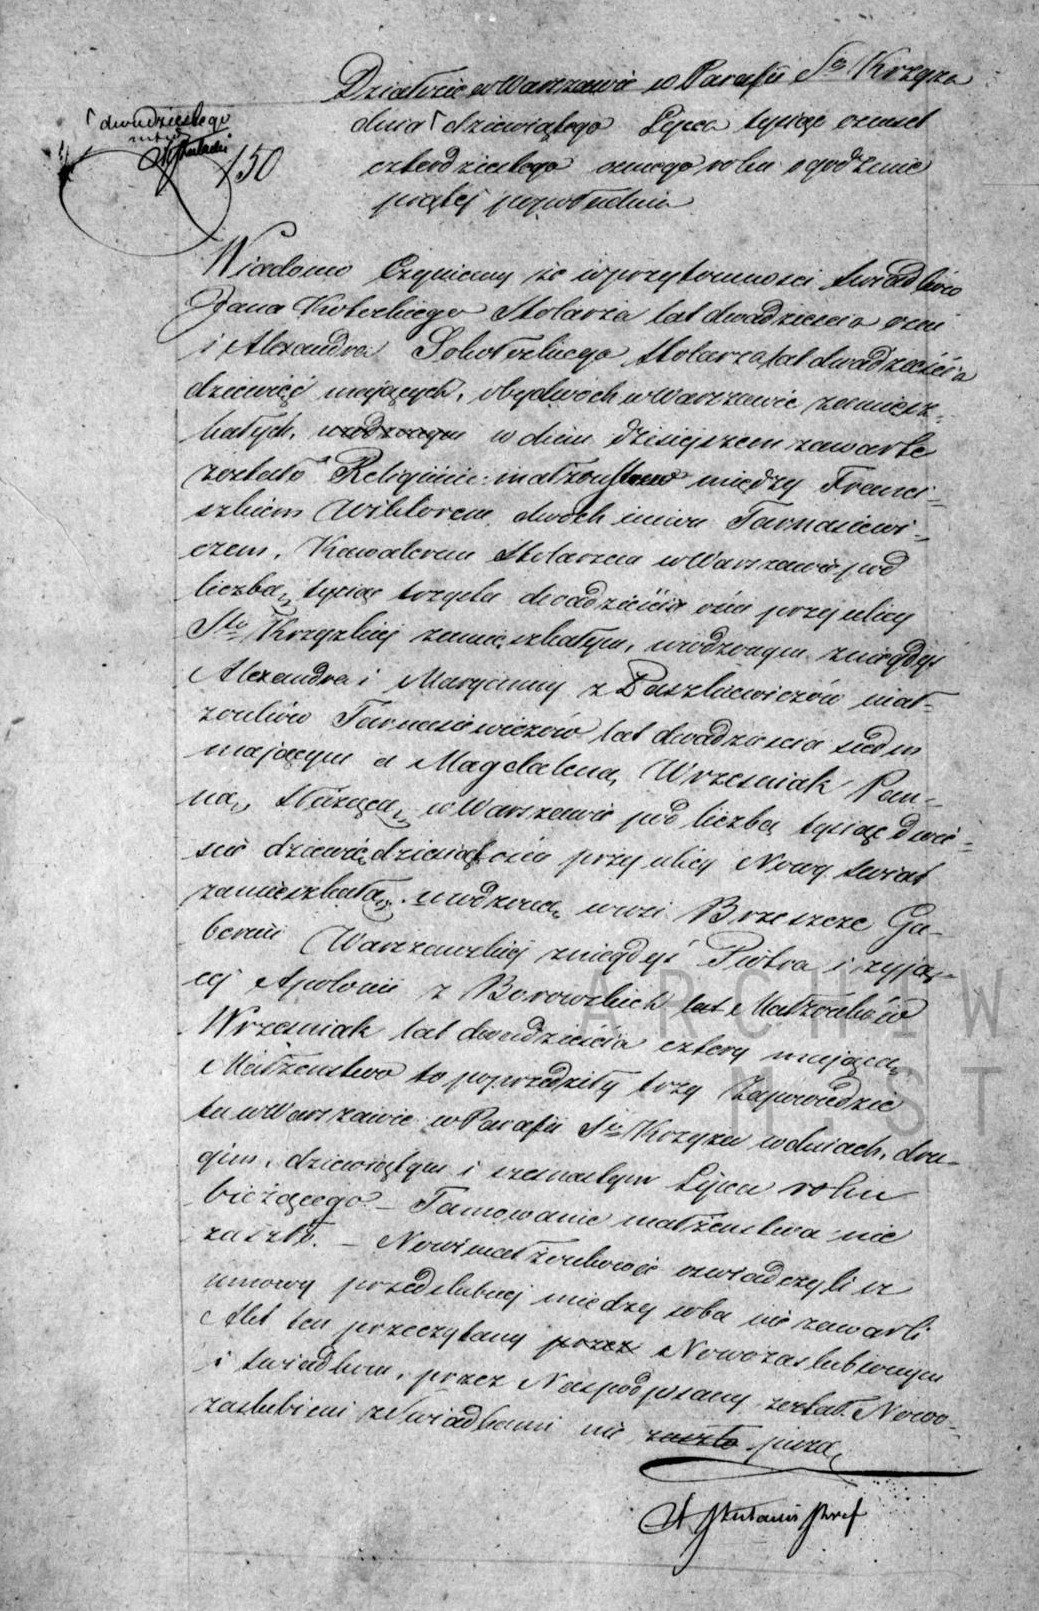 Działo się w Warszawie w Parafii Sgo Krzyża
dwudziestego
dnia dziewiątego Lipca tysiąc osmset
150
czterdziestego osmego roku o godzinie
piątej popołudniu
Wiadomo Czyniemy że w przytomności Swiadków
Jana Koteckiego Stolarza lat dwadzieścia osm
i Alexandra Stolarza lat dwadzieścia
dziewięć mających, obydwóch w Warszawie zamiesz-
kałych, w dniu dzisiejszem zawarte
zostało Religijnie małżeństwo między Franci-
szkiem Wiktorem dwóch imion Tarnasiewi-
czem, Kawalerem Stolarzem w Warszawie pod
liczbą tysiąc trzysta dwadzieścia ośm przy ulicy
Sto Krzyzkiej zamieszkałym, urodzonym z niegdyś
Alexandra i Maryanny z Paszkiewiczów mał-
żonków Tarnasiewiczów lat dwadzieścia siedm
mającym a Magdaleną Wrzesniak Pan-
ną, Służącą, w Warszawie pod liczbą tysiąc dwie-
scie dziewięćdziesiąt ośm przy ulicy Nowy Swiat
zamieszkałą, urodzoną we wsi Brzeszcze Gu-
berni Warszawskiej z niegdyś Piotra i żyją-
cej Apolonii z Borowskich lat Małżonków
Wrzesniak lat dwadzieścia cztery mającą
Małżeństwo to poprzedziły trzy Zapowiedzie
tu w Warszawie w Parafii Sgo Krzyża w dniach, dru-
gim, dziewiątym i szesnastym Lipca roku
bieżącego. – Tamowanie małżeństwa nie
zaszło. – Nowi małżonkowie oświadczyli iż
umowy przedślubnej między sobą nie zawarli
Akt ten przeczytany przez Nowozaślubionym
i świadkom, przez Nas podpisany został. Nowo-
zaślubieni z Swiadkami nie zaszło piszą
ARCHIW
M ST